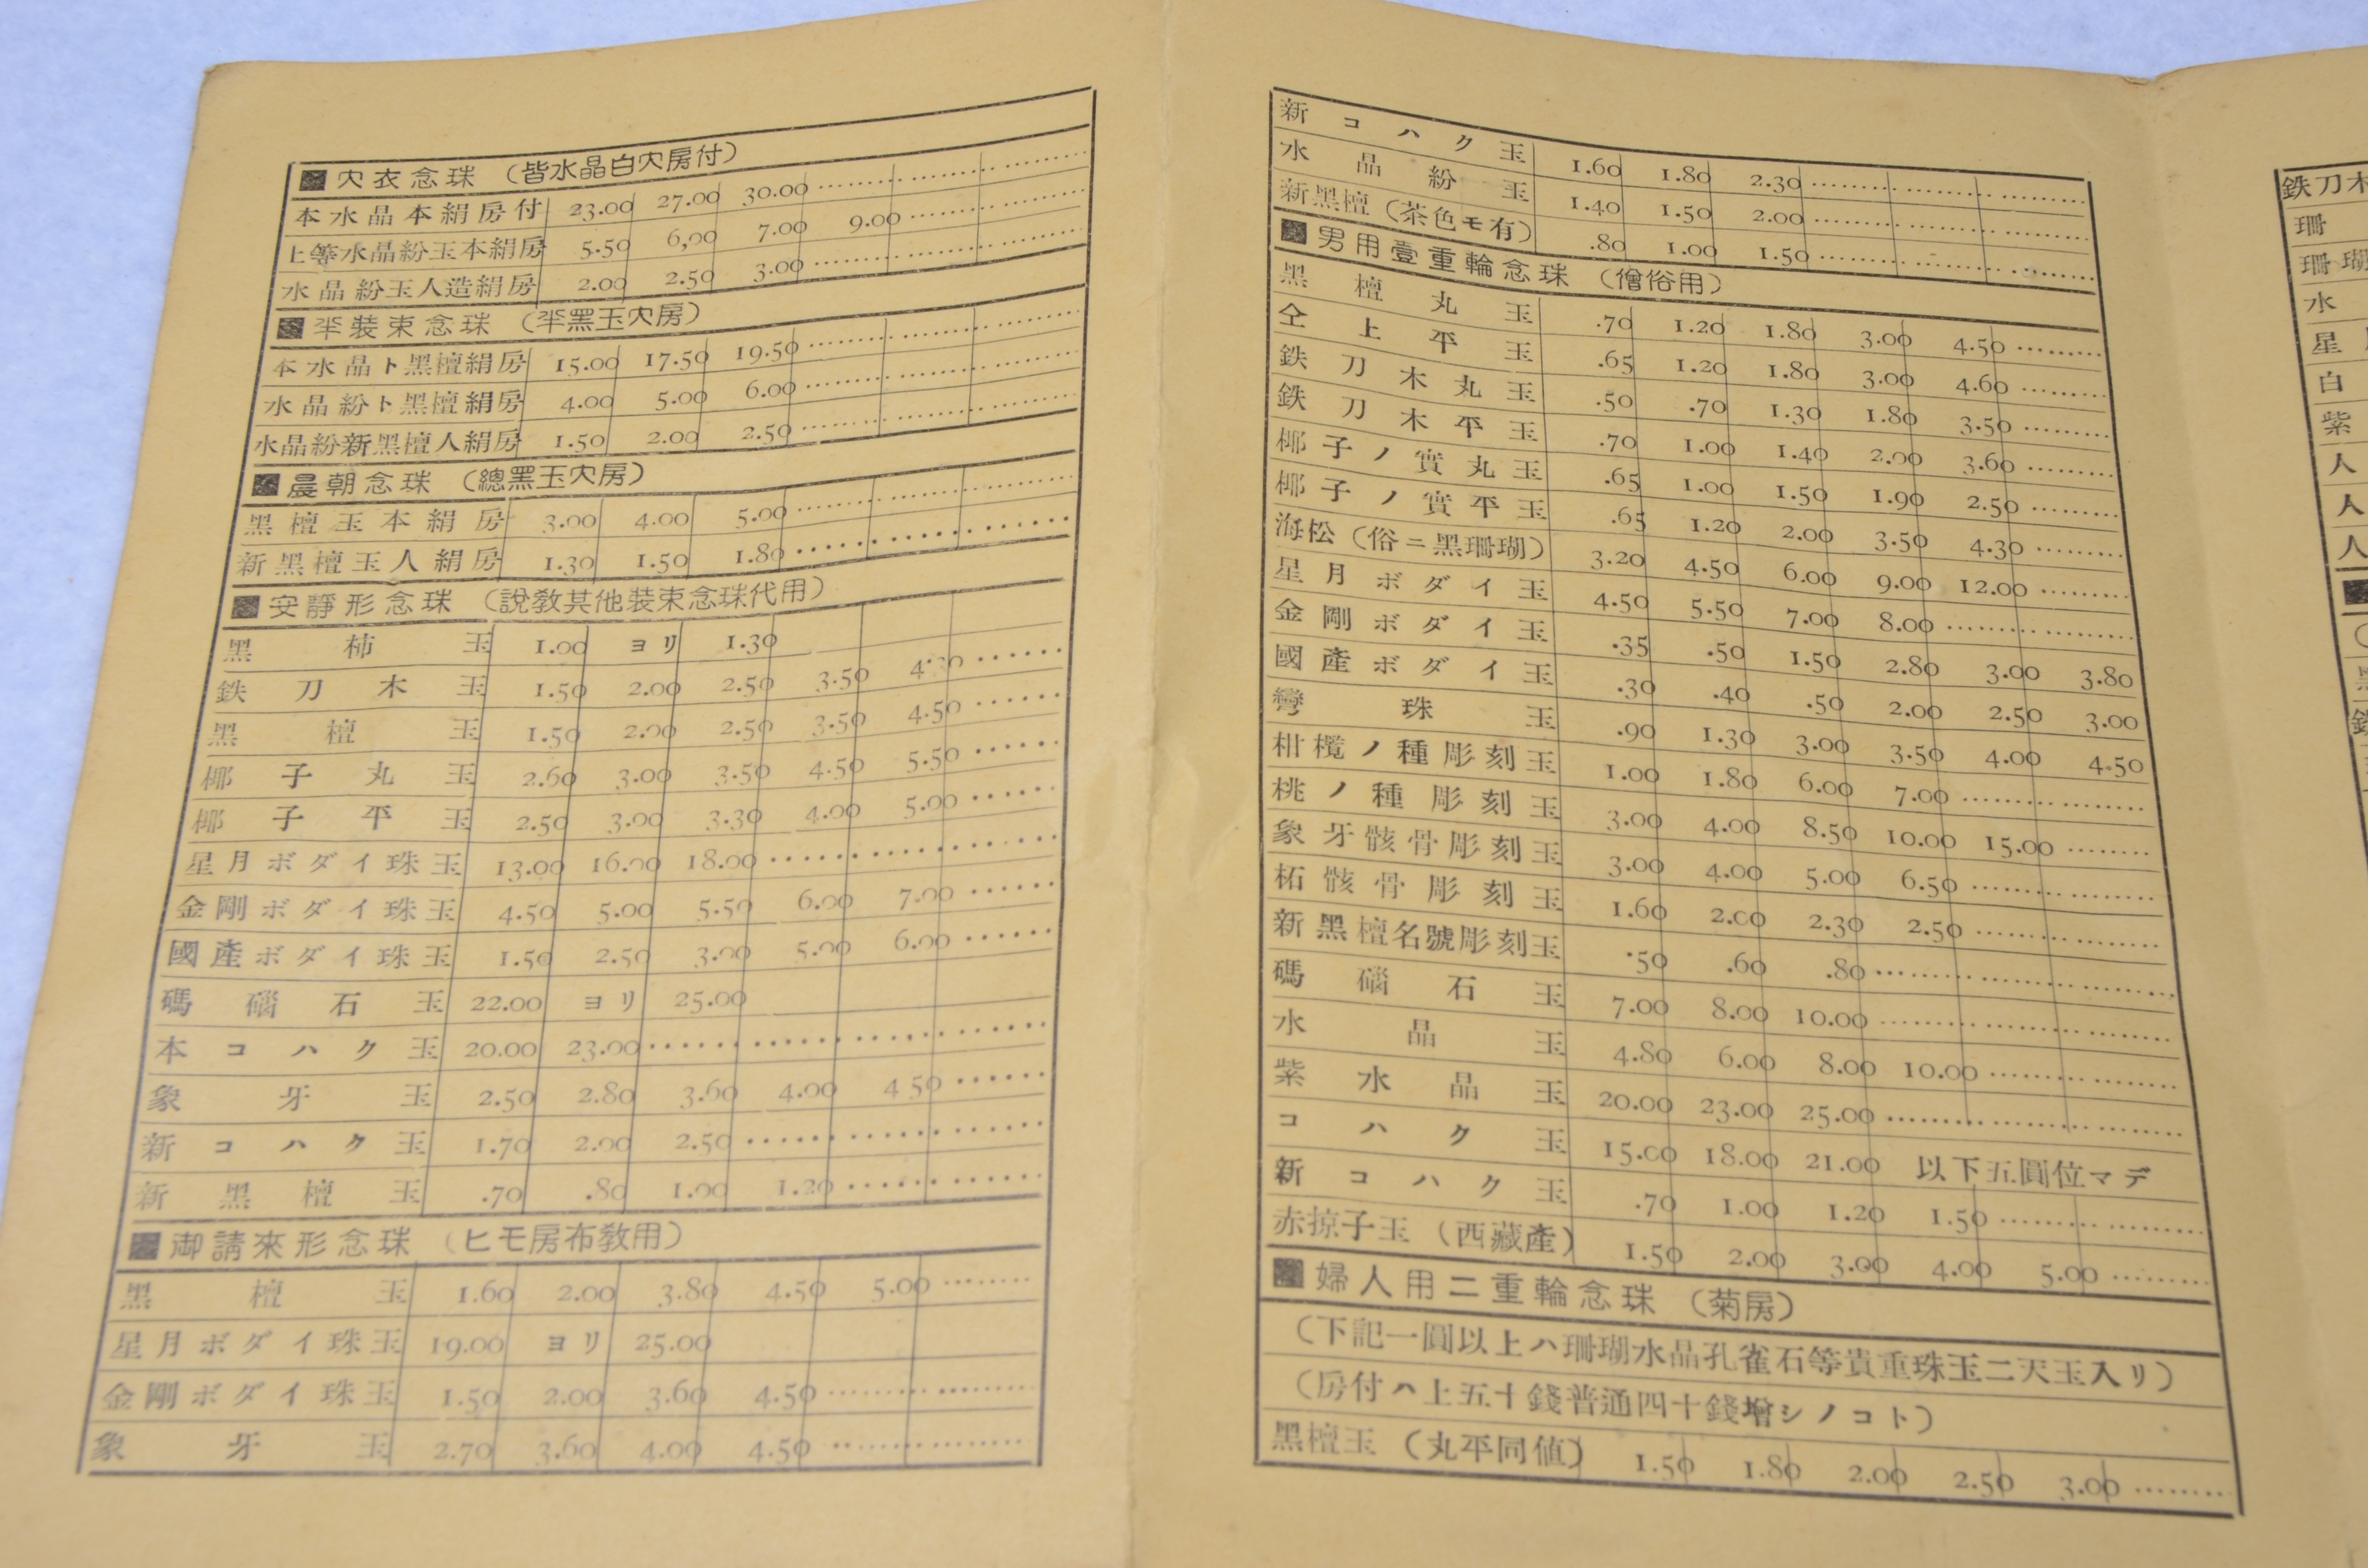 ■ 穴衣念珠 (皆水晶白穴房付)
本水晶本絹房付 23.00 27.00 30.00
上等水晶紛玉本絹房 5.50 6,00 7.00 9.00
水晶紛玉人造絹房 2.00 2.50 3.00
■ 半裝束念珠 (半黑玉穴房)
本水晶ト黑檀絹房 15.00 17.50 19.50
水晶紛ト黑檀絹房 4.00 5.00 6.00
水晶紛新黑檀人絹房 1.50 2.00 2.50
■ 晨朝念珠 (總黑玉穴房)
黑檀玉本絹房 3.00 4.00 5.00
新黑檀玉人絹房 1.30 1.50 1.80
■ 安靜形念珠 (說敎其他裝束念珠代用)
黑柿玉 1.00 ヨリ 1.30
鉄刀木玉 1.50 2.00 2.50 3.50
黑檀玉 1.50 2.00 2.50 3.50 4.50
椰子丸玉 2.60 3.00 3.50 4.50 5.50
椰子平玉 2.50 3.00 3.30 4.00 5.00
星月ボダイ珠玉 13.00 16.00 18.00
金剛ボダイ珠玉 4.50 5.00 5.50 6.00 7.00
國產ボダイ珠玉 1.50 2.50 3.00 5.00 6.00
碼碯石玉 22.00 ヨリ 25.00
本コハク玉 20.00 23.00
象牙玉 2.50 2.80 3.60 4.00 4 50
新コハク玉 1.70 2.00 2.50
新黑檀玉 .70 .80 1.00 1.20
■ 御請來形念珠 (ヒモ房布敎用)
黑檀玉 1.60 2.00 3.80 4.50 5.00
星月ボダイ珠玉 19.00 ヨリ 25.00
金剛ボダイ珠玉 1.50 2.00 3.60 4.50
象牙玉 2.70 3.60 4.00 4.50
新コハク玉 1.60 1.80 2.30
水晶紛玉 1.40 1.50 2.00
新黑檀 (茶色モ有) .80 1.00 1.50
■ 男用壹重輪念珠 (僧俗用)
黑檀丸玉 .70 1.20 1.80 3.00 4.50
仝上平玉 .65 1.20 1.80 3.00 4.60
鉄刀木丸玉 .50 .70 1.30 1.80 3.50
鉄刀木平玉 .70 1.00 1.40 2.00 3.60
椰子ノ實丸玉 .65 1.00 1.50 1.90 2.50
椰子ノ實平玉 .65 1.20 2.00 3.50 4.30
海松 (俗ニ黑珊瑚) 3.20 4.50 6.00 9.00 12.00
星月ボダイ玉 4.50 5.50 7.00 8.00
金剛ボダイ玉 .35 .50 1.50 2.80 3.00 3.80
國產ボダイ玉 .30 .40 .50 2.00 2.50 3.00
彎珠玉 .90 1.30 3.00 3.50 4.00 4.50
柑欖ノ種彫刻玉 1.00 1.80 6.00 7.00
桃ノ種彫刻玉 3.00 4.00 8.50 10.00 15.00
象牙骸骨彫刻玉 3.00 4.00 5.00 6.50
柘骸骨彫刻玉 1.60 2.00 2.30 2.50
新黑檀名號彫刻玉 .50 .60 .80
碼碯石玉 7.00 8.00 10.00
水晶玉 4.80 6.00 8.00 10.00
紫水晶玉 20.00 23.00 25.00
コハク玉 15.00 18.00 21.00 以下五圓位マデ
新コハク玉 .70 1.00 1.20 1.50
赤掠子玉 (西藏產) 1.50 2.00 3.00 4.00 5.00
■ 婦人用二重輪念珠 (菊房)
(下記一圓以上ハ珊瑚水晶孔雀石等貴重珠玉二天玉入リ)
(房付ハ上五十錢普通四十錢增シノコト)
黑檀玉 (丸平同値) 1.50 1.80 2.00 2.50 3.00
鉄刀木
珊
珊瑚
水
星
白
紫
人
人
人